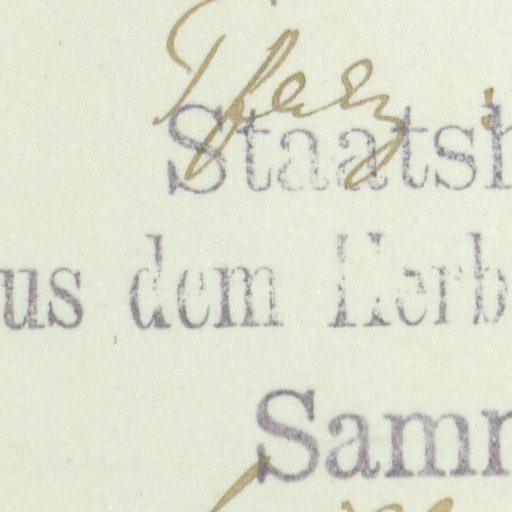 Pfalz :
Staatsh
us dem Herb
Samm